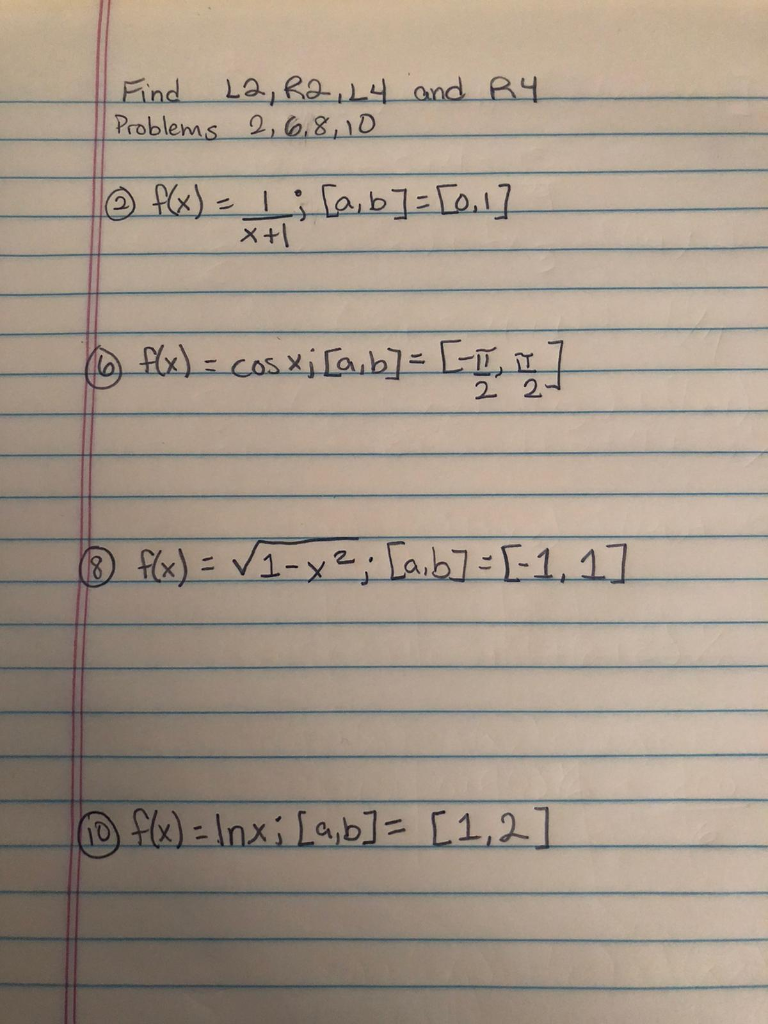 Find L2, R2, L4 and R4
Problems 2, 6, 8, 10
② f(x) = 1/(x+1) ; [a,b] = [0,1]
⑥ f(x) = cos x ; [a,b] = [-π/2, π/2]
⑧ f(x) = √(1-x²) ; [a,b] = [-1, 1]
⑩ f(x) = ln x ; [a,b] = [1,2]